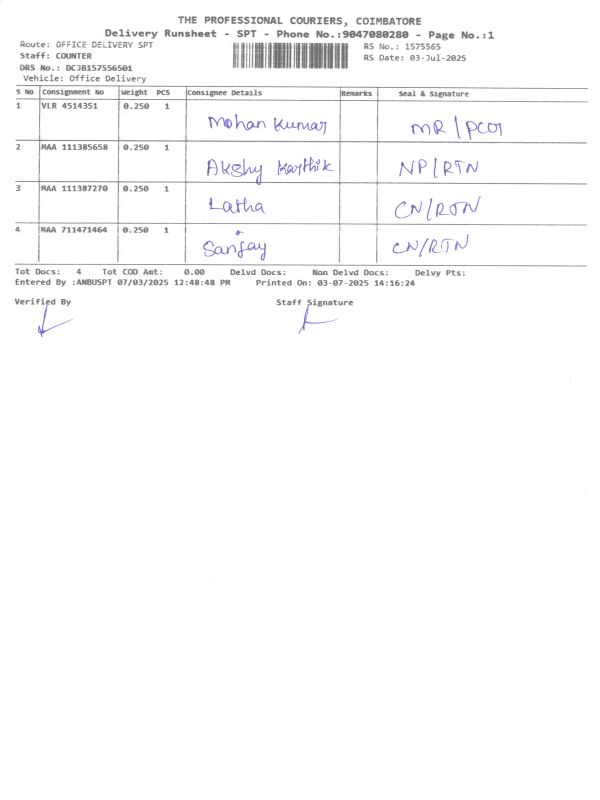 THE PROFESSIONAL COURIERS, COIMBATORE
Delivery Runsheet - SPT - Phone No.:9047080280 - Page No.:1
Route: OFFICE DELIVERY SPT RS No.: 1575565
Staff: COUNTER RS Date: 03-Jul-2025
DRS No.: DCJB157556501
Vehicle: Office Delivery
S No Consignment No Weight PCS Consignee Details Remarks Seal & Signature
1 VLR 4514351 0.250 1 Mohan Kumar MR/
2 MAA 111385658 0.250 1 Akshy Karthik NP/RTN
3 MAA 111387270 0.250 1 Latha CN/RTN
4 MAA 711471464 0.250 1 Sanjay CN/RTN
Tot Docs: 4 Tot COD Amt: 0.00 Delvd Docs: Non Delvd Docs: Delvy Pts:
Entered By :ANBUSPT 07/03/2025 12:48:48 PM Printed On: 03-07-2025 14:16:24
Verified By Staff Signature